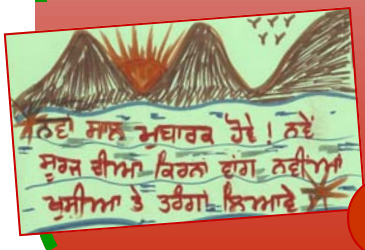 ਨਵਾਂ ਸਾਲ ਮੁਬਾਰਕ ਹੋਵੇ ! ਨਵੇਂ
ਸੂਰਜ ਦੀਆਂ ਕਿਰਨਾਂ ਵਾਂਗ ਨਵੀਂਆਂ
ਖੁਸ਼ੀਆਂ ਤੇ ਤਰੰਗਾਂ ਲਿਆਵੇ